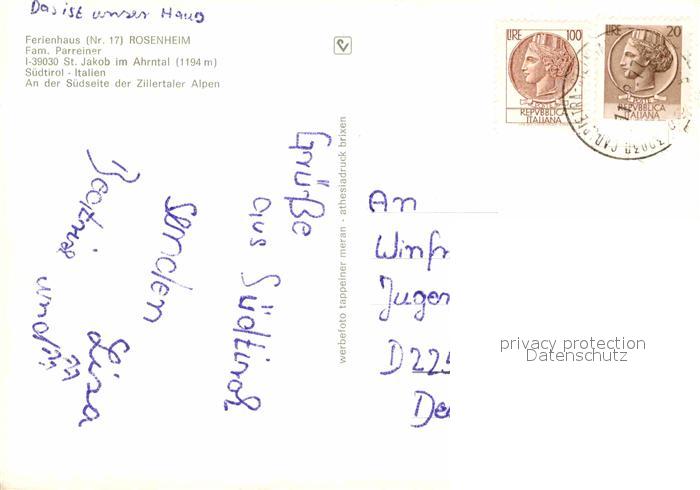 Das ist unser Haus
Ferienhaus (Nr. 17) ROSENHEIM
Fam. Parreiner
I-39030 St. Jakob im Ahrntal (1194 m)
Südtirol - Italien
An der Südseite der Zillertaler Alpen
LIRE 100
REPVBBLICA
ITALIANA
LIRE 20
REPVBBLICA
ITALIANA
werbefoto tappeiner meran - athesiadruck brixen
Grüße
aus Südtirol
senden
und
An
Winfr
Jugen
D225
De
privacy protection
Datenschutz